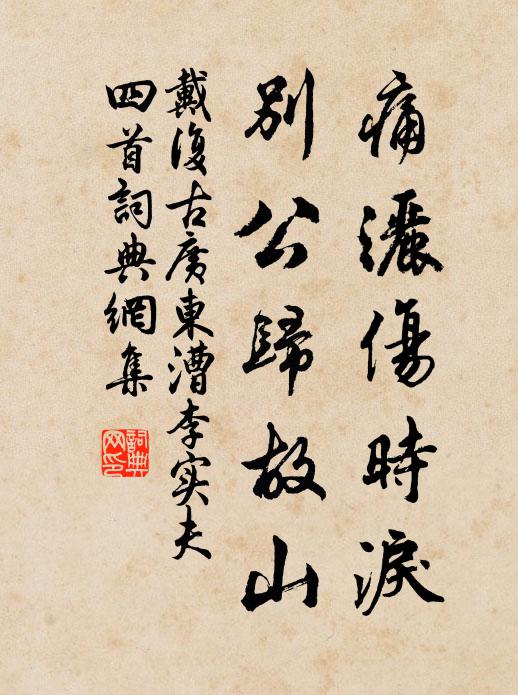 痛灑傷時淚
別公歸故山
戴復古廣東漕李实夫
四首詞典網集
詞典
网印